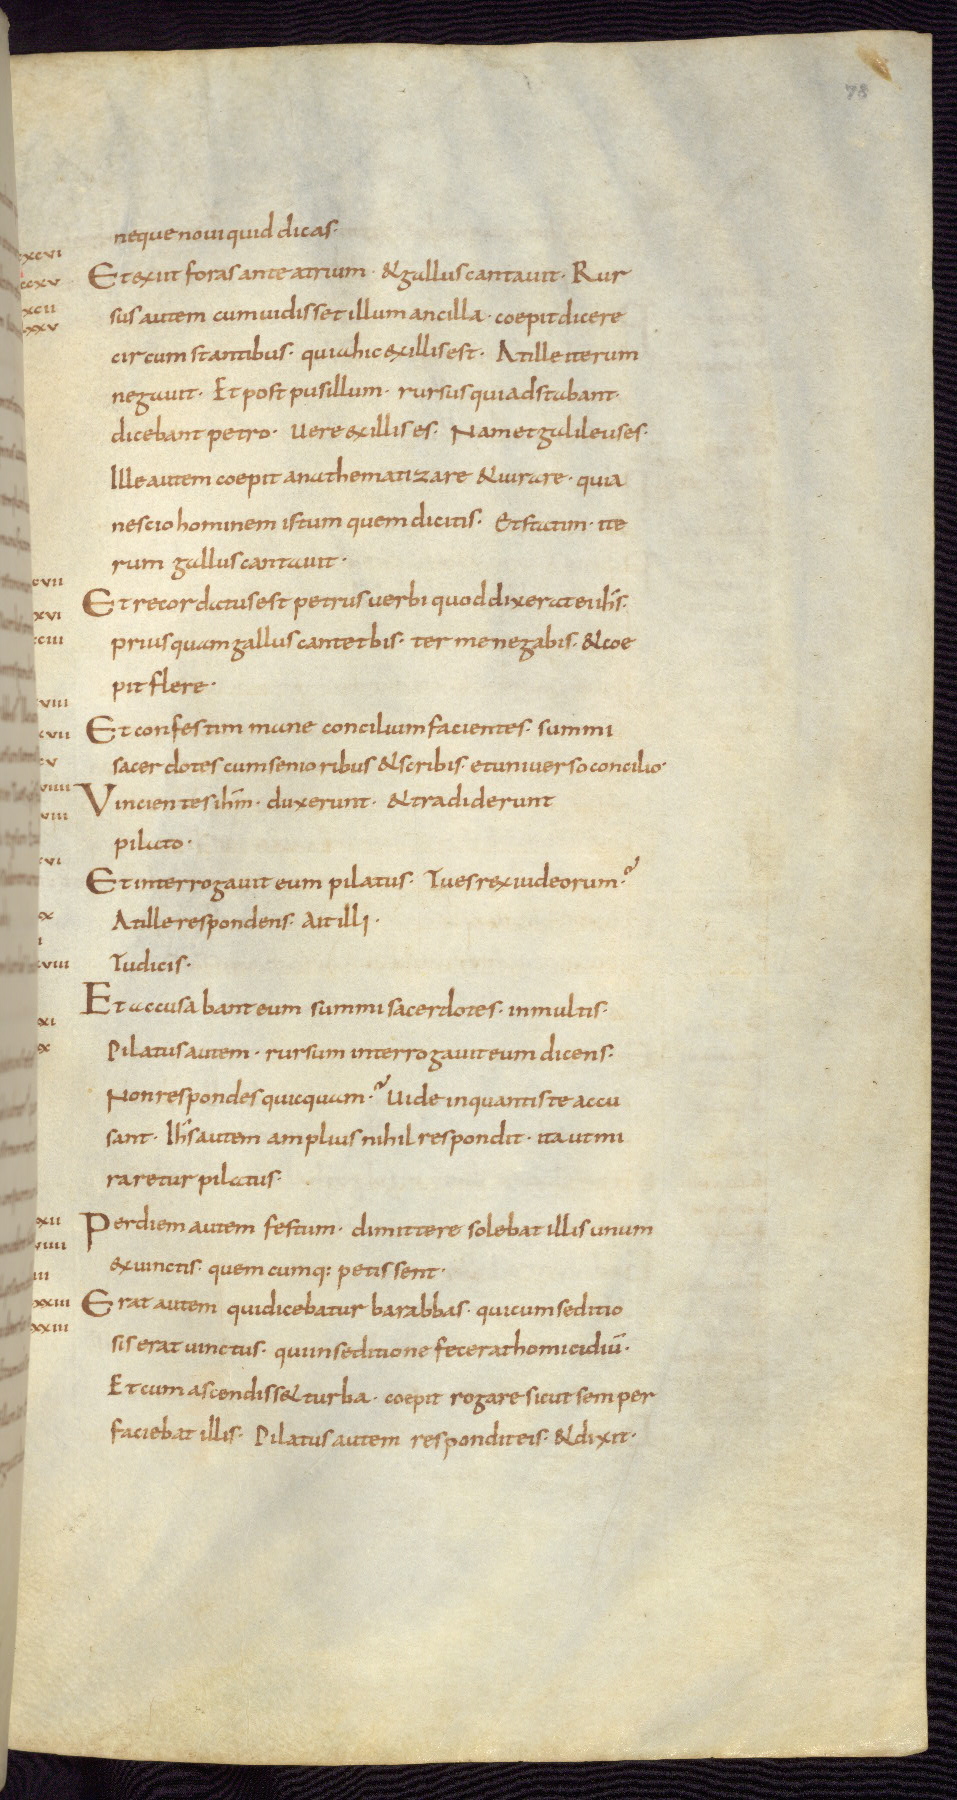 78
neque noui quid dicas·
Et exiit foras ante atrium· & gallus cantauit· Rur
sus autem cum uidisset illum ancilla· coepit dicere
circumstantibus· quia hic ex illis est· At ille iterum
negauit· Et post pusillum· rursus qui adstabant·
dicebant petro· Uere ex illis es· Nam et galileus es·
Ille autem coepit anathematizare & iurare· quia
nescio hominem istum quem dicitis· Et statim· ite
rum gallus cantauit·
Et recordatus est petrus uerbi quod dixerat ei ihs̄·
priusquam gallus cantet bis· ter me negabis· & coe
pit flere·
Et confestim mane concilium facientes· summi
sacerdotes cum senioribus & scribis· et uniuerso concilio·
Vincientes ihm̄· duxerunt· & tradiderunt
pilato·
Et interrogauit eum pilatus· Tu es rex iudeorum?
At ille respondens· Ait illi·
Tu dicis·
Et accusabant eum summi sacerdotes· in multis·
Pilatus autem· rursum interrogauit eum dicens·
Non respondes quicquam? Uide in quantis te accu
sant· Ihs̄ autem amplius nihil respondit· ita ut mi
raretur pilatus·
Per diem autem festum· dimittere solebat illis unum
ex uinctis· quem cumq: petissent·
Erat autem qui dicebatur barabbas· qui cum seditio
sis erat uinctus· qui in seditione fecerat homicidiū·
Et cum ascendiss& turba· coepit rogare sicut semper
faciebat illis· Pilatus autem respondit eis· & dixit·